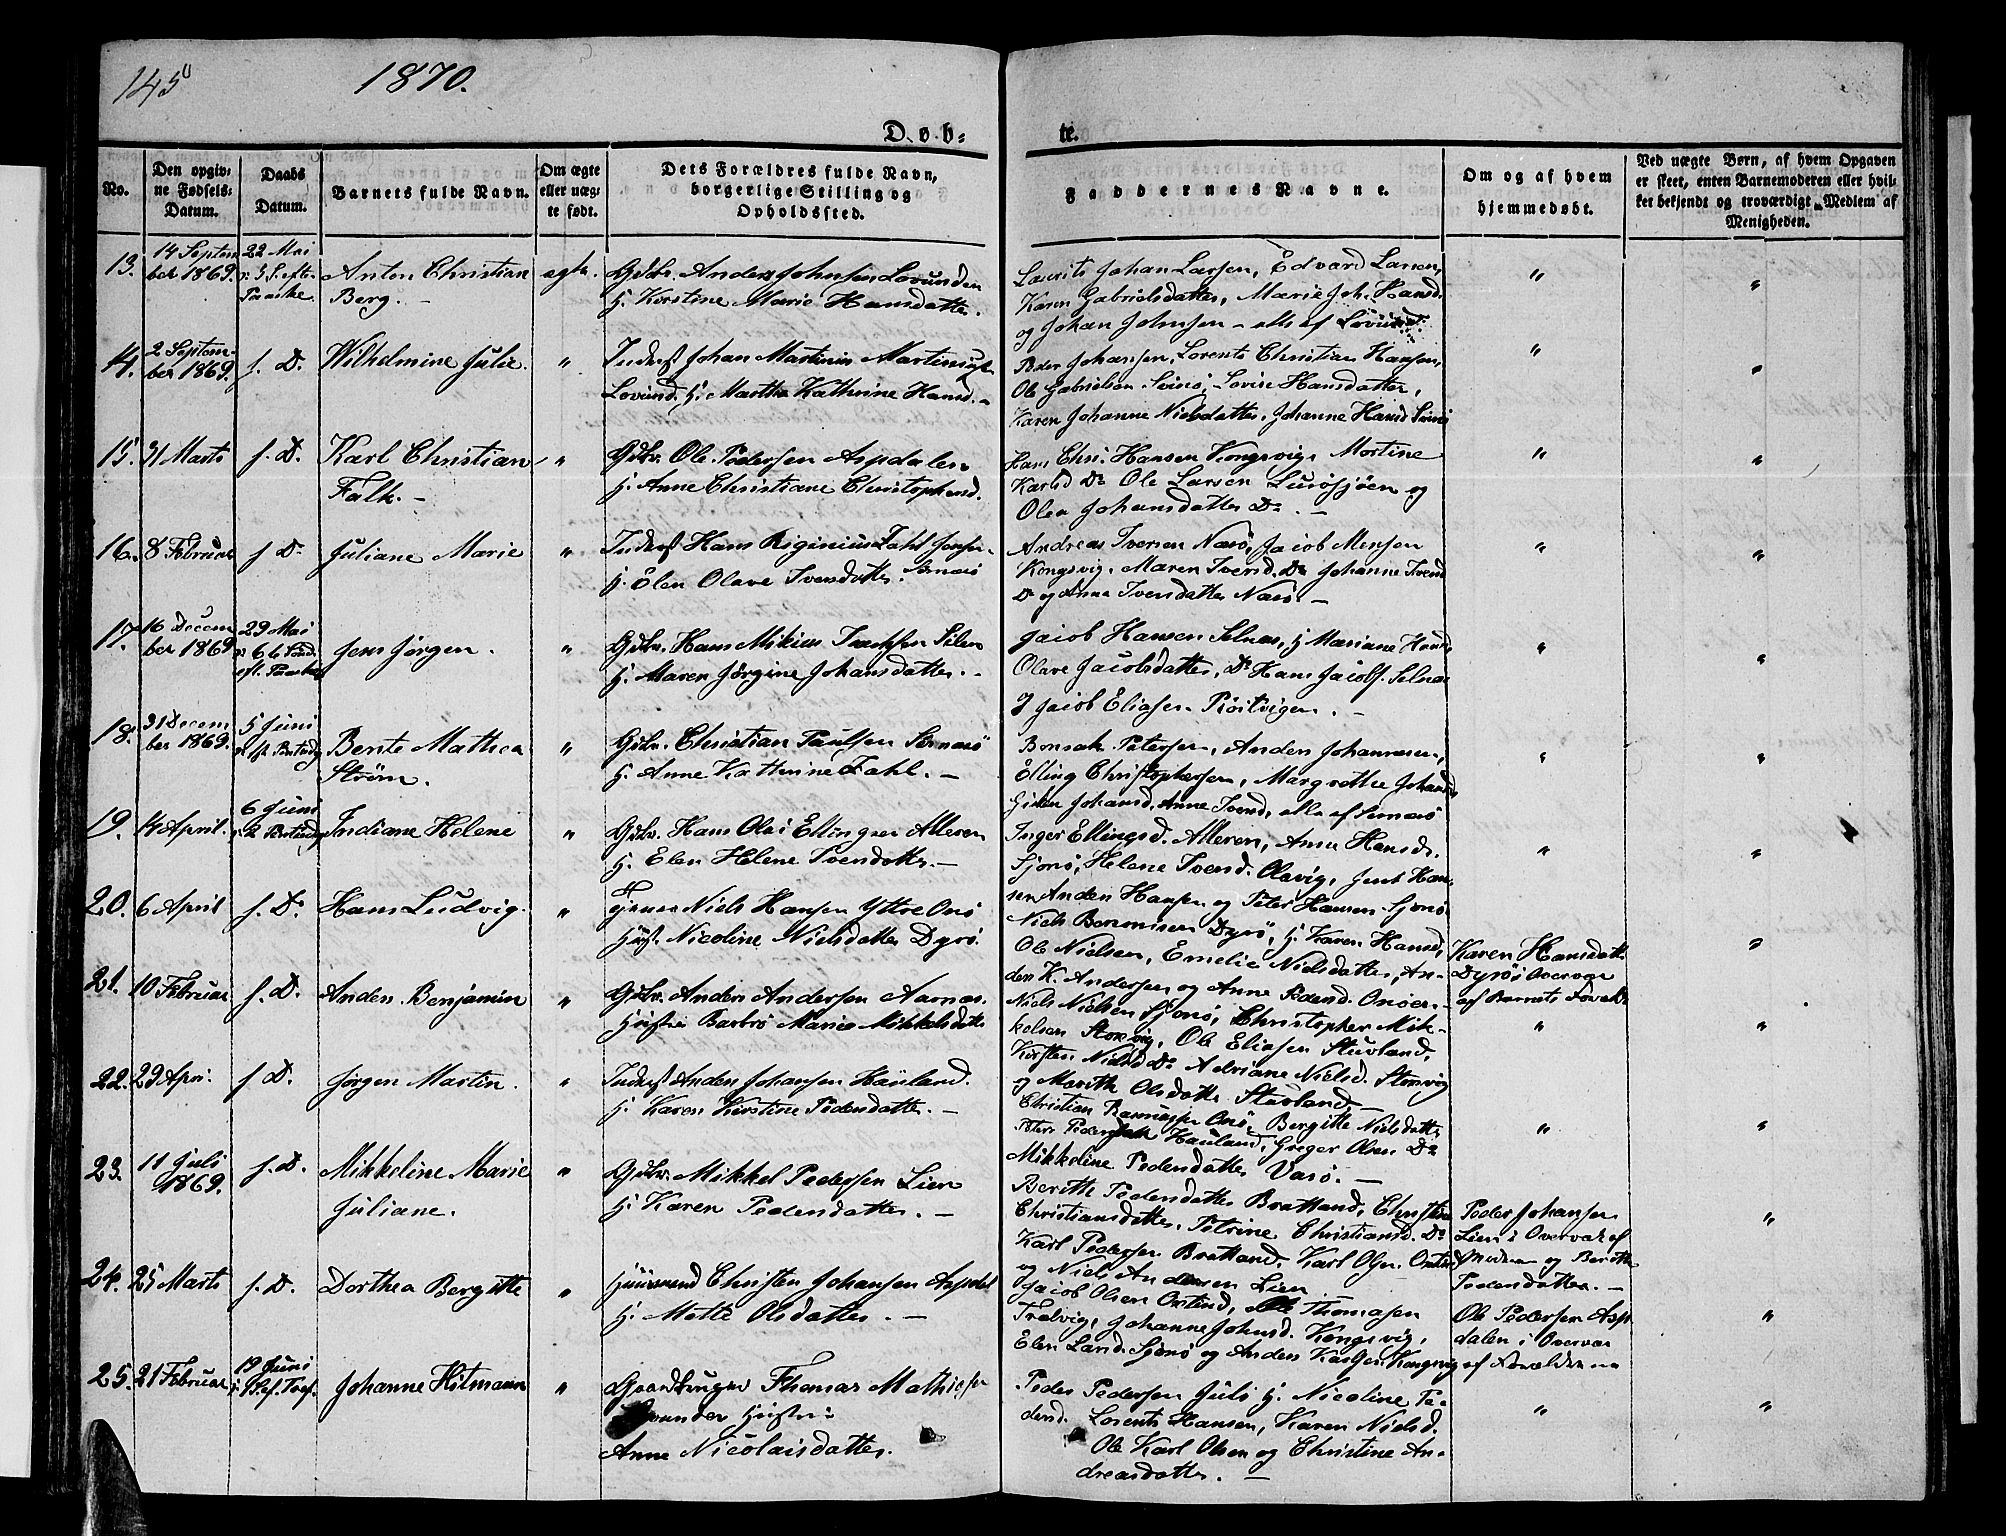 145
1870.
D o b-
te.
No.
Den opgiv-
ne Fødsels-
Datum.
Daabs
Datum.
Barnets fulde Navn.
Om ægte
eller uæg-
te født.
Dets Forældres fulde Navn,
borgerlige Stilling og
Opholdssted.
Faddernes Navne.
Om og af hvem
hjemmedøbt.
Ved uægte Børn, af hvem Opgaven
er skeet, enten Barnemoderen eller hvil-
ket bekjendt og troværdigt Medlem af
Menigheden.
13.
14 Septem
ber 1869.
22 Mai
5 S. efter
Paaske.
Anton Christian
Berg. -
Gdbr. Anders Johnsen Lovunden
H. Kirstine Marie Hansdatter.
Laurits Johan Larsen, Edvard Larsen,
Karen Gabrielsdatter, Marie Joh. Hansd.
og Johan Johnsen - alle af Lovund.
"
"
14.
2 Septem-
ber 1869.
s. D.
Wilhelmine Julie.
"
Inderst Johan Martinus
Lovund. H. Marthe Kathrine Hansd. -
Peder Johansen, Lorents Christian Hansen,
Ole Gabrielsen Svinø, Lovise Hansdatter,
Karen Johanne Nielsdatter, Johanne Hansd
"
"
15.
31 Marts
s. D.
Karl Christian
Falk. -
"
Gdbr. Ole Pedersen Aspdalen
H. Anne Christiane Christophersd.
Hans Chri. Hansen Kongsvig, Mortine
Karlsd Do Ole Larsen Lurøsjøen og
Olea Johansdatter Do -
"
"
16.
8 Februar
s. D.
Juliane Marie
"
Inderst Hans Riginius Zahl
H. Elen Olave Iversdatter.
Andreas Iversen Nasø, Jacob
Kongsvig, Maren Iversd. Do Johanne Iversd
Do og Anna Iversdatter Nasø. -
"
"
17.
16 Decem
ber 1869.
29 Mai
6te Sønd.
eft. Paaske
Jens Jørgen.
"
Gdbr. Hans Mikias Silen
H. Maren Jørgine Johansdatter. -
Jacob Hansen Selnæs, H. Mariane
Olave Jacobsdatter, Do Hans Jacobs. Selnæs
Jacob Eliasen -
"
"
18.
31 Decem
ber 1869.
5 Juni
Bente Mathea
Strøm.
"
Gdbr. Christian Paulsen
H. Anne Kathrine Zahl. -
Bonsak Petersen, Anders Johannesen,
Elling Christophersen, Margrethe
Johansd. Anne Iversd. alle af
"
"
19.
14 April.
6 Juni
Indiane Helene
"
Gdbr. Hans Olai Ellingsen Alderen
H. Elen Helene Ivendatter. -
Inger Ellingsd. Alderen, Anne Hansd.
Sjonø, Helene Ivend. Olavig, Jens Han-
sen Anders Hansen og Peter Hansen Sjonø
"
"
20.
6 April
s. D.
Hans Ludvig.
"
Niels Hansen Yttre Onø
Hust. Nicoline Nielsdatter Dyrø.
Niels Dyrø, H. Karen Hansd,
Ole Nielsen, Emelie Nielsdatter, An-
ders K. Andersen og Anne Pedersd. Onøen.
Karen Hansdatter
Dyrø i Overvær
af Barnets
"
21.
10 Februar
s. D.
Anders Benjamin
"
Gdbr. Anders Andersen Aarnæs.
Hustru Barbro Marie Mikkelsdatter
Niels Nielsen Sjonø, Christopher Mik-
kelsen Storvig, Ole Eliasen Stuvland,
Kirsten Nielsd Do Adriane Nielsd. Storvig
og Marith Olsdatter Stuvland. -
"
"
22.
29 Apri.
s. D.
Jørgen Martin.
"
Inderst Anders Johansen Hauland.
H. Karen Kirstine Pedersdatter. -
Christian Rasmussen Onø, Bergitte Nielsdatter
Hauland, Greger Olsen Do
Mikkeline Pedersdatter Varø. -
"
"
23.
11 Juli
1869.
s. D.
Mikkeline Marie
Juliane.
"
Gdbr. Mikkel Pedersen Lien
H. Karen Pedersdatter. -
Berith Pedersdatter Bratland, Christine
Christiansdatter, Petrine Christiansd. Do
Karl Pedersen Bratland, Karl Olsen
og Niels Andersen Lien
Peder Johansen
Lien i Overvær af
Moderen og Berith
Pedersdatter. -
"
24.
25 Marts
s. D.
Dorthea Bergitte
"
Huusmand Christen Johansen Aspdal
H. Mette Olsdatter. -
Jacob Olsen Thomasen
Johanne Johnsd. Kongsvig,
Elen Larsd. Sjonø og Anders Kongsvig
Ole Pedersen Asp-
dalen i Overvær
af Forældrene
"
25.
21 Februar
19 Juni
1 S. ef. Tref.
Johanne Hitmann
"
Gaardbruger Thomas Mathiesen
Hustru
Anne Nicolaisdatter.
Peder Pedersen H. Nicoline Pe-
dersd. Lorents Hansen, Karen Nielsd.
Ole Karl Olsen og Christine An-
dreasdatter. -
"
"